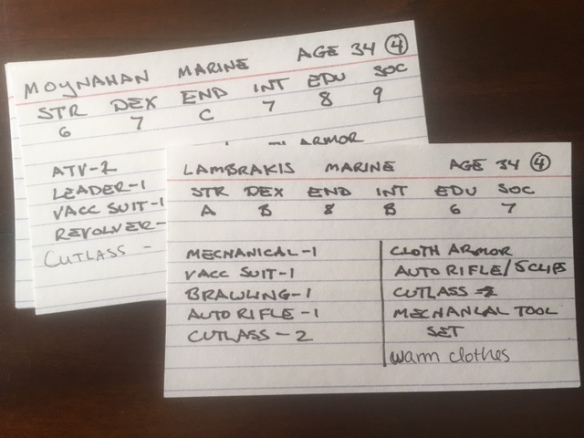 MOYNAHAN MARINE AGE 34 4
STR DEX END INT EDU SOC
6 7 C 7 8 9
ARMOR
ATV-2
LEADER-1
VACC SUIT-1
REVOLVER-
CUTLASS -
LAMBRAKIS MARINE AGE 34 4
STR DEX END INT EDU SOC
A B 8 B 6 7
MECHANICAL-1
VACC SUIT-1
BRAWLING-1
AUTO RIFLE-1
CUTLASS-2
CLOTH ARMOR
AUTO RIFLE/5 CLIPS
CUTLASS
MECHANICAL TOOL
SET
warm clothes